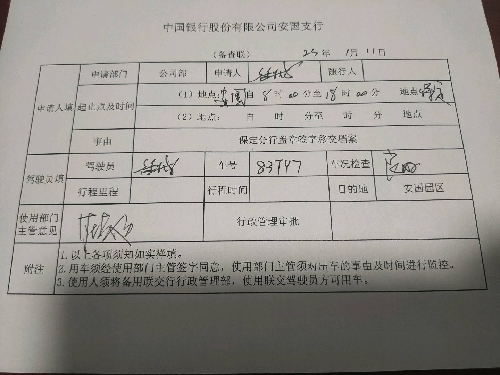 中国银行股份有限公司安国支行
(备查联) 23年 1月 11日
申请人填 申请部门 公司部 申请人 随行人
起止点及时间 (1) 地点: 安国 自 8 时 00 分至 18 时 00 分 地点
(2) 地点: 自 时 分至 时 分 地点
事由 保定分行盖章签字移交档案
驾驶员填 驾驶员 车号 83747 车况检查
行程里程 行程时间 目的地 安国园区
使用部门主管意见 行政管理审批
附注 1.以上各项须知如实详填。
2.用车须经使用部门主管签字同意，使用部门主管须对用车的事由及时间进行监控。
3.使用人须将备用联交行政管理部，使用联交驾驶员方可用车。